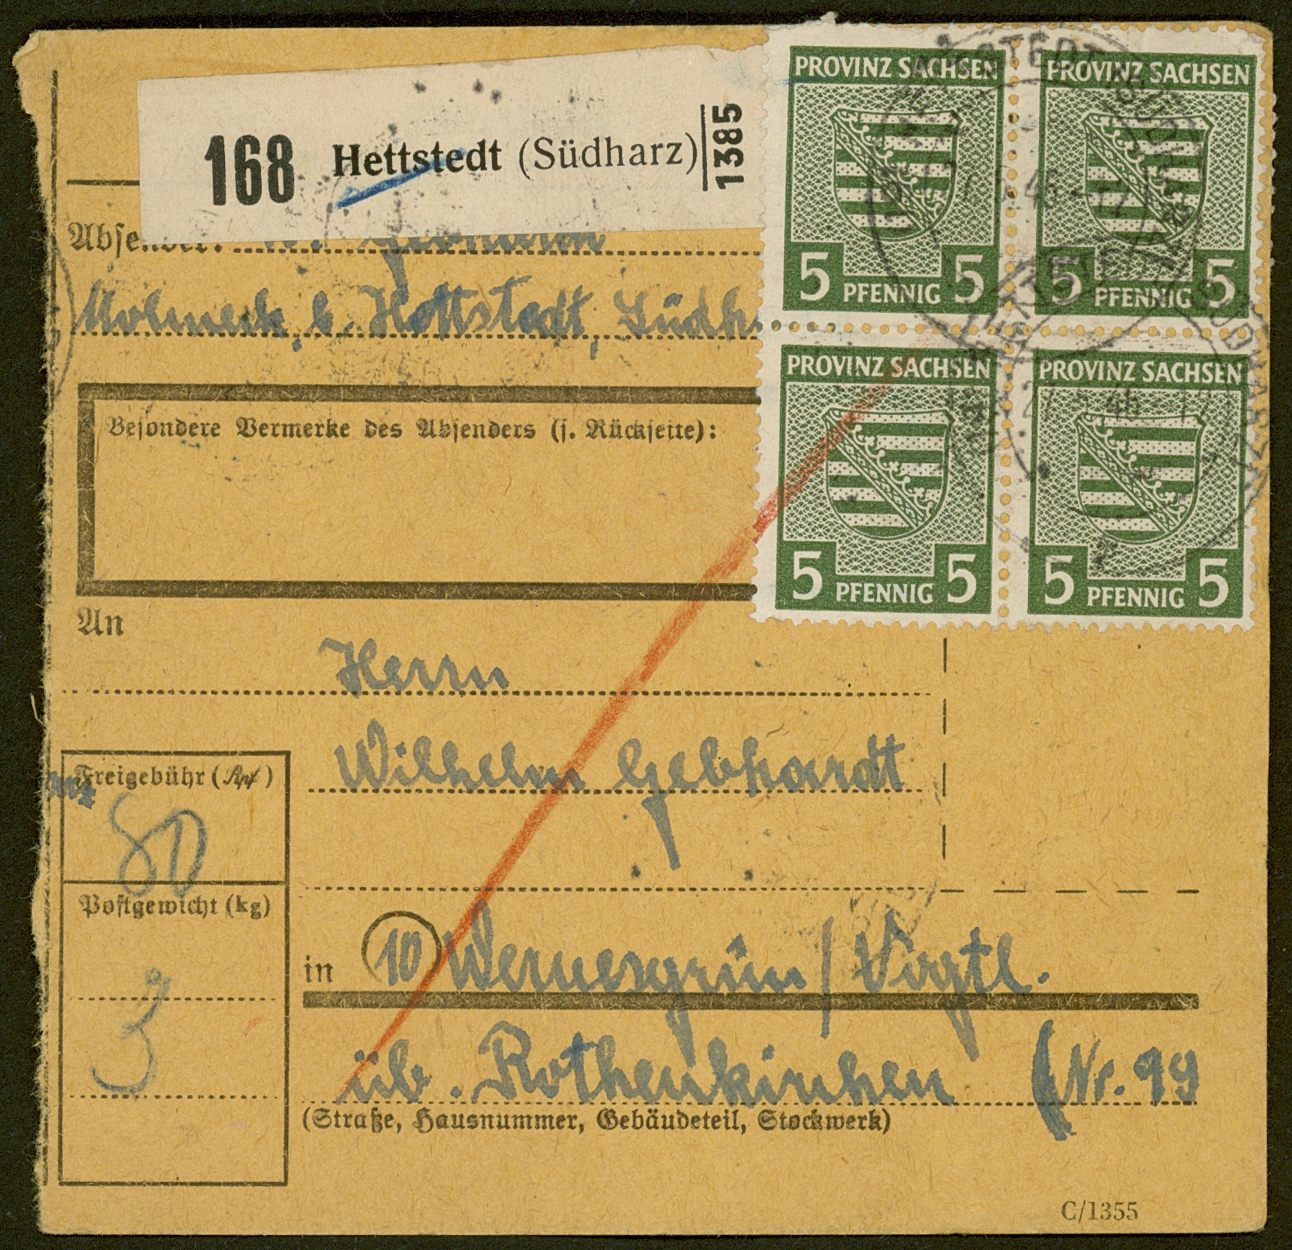 168 Hettstedt (Südharz) 1385
PROVINZ SACHSEN
5 PFENNIG 5
PROVINZ SACHSEN
5 PFENNIG 5
PROVINZ SACHSEN
5 PFENNIG 5
PROVINZ SACHSEN
5 PFENNIG 5
Absender:
Molmeck, b. Hettstedt, Südh.
Besondere Vermerke des Absenders (s. Rückseite):
An
Herrn
Wilhelm Gebhardt
Freigebühr (Rpf)
80
Postgewicht (kg)
3
in (10) Wernesgrün / Vogtl.
üb. Rothenkirchen (Nr. 99
(Straße, Hausnummer, Gebäudeteil, Stockwerk)
C/1355